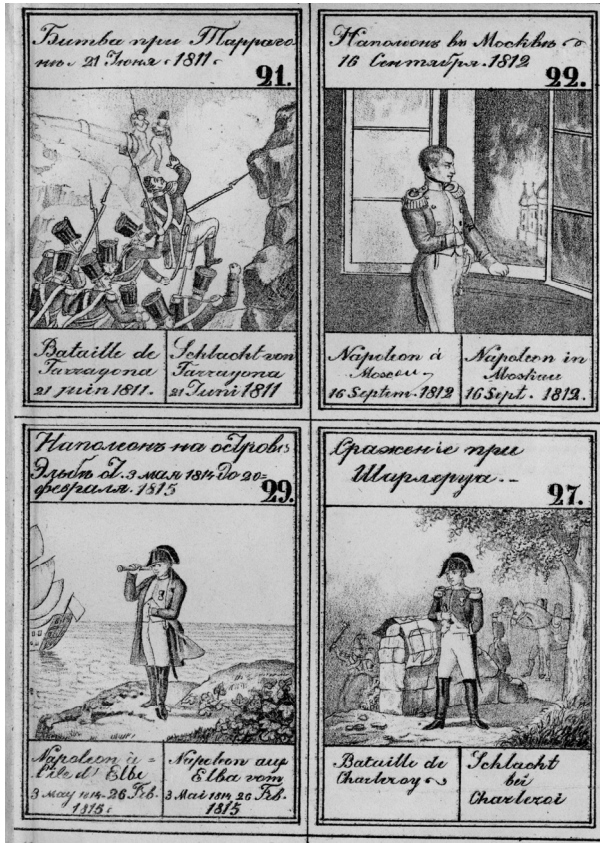 Битва при Тарраго
нѣ 21 Іюня 1811.
21.
Bataille de
Tarragona
21 juin 1811.
Schlacht von
Tarragona
21 Juni 1811
Наполеонъ въ Москвѣ
16 Сентября. 1812
22.
Napoleon à
Moscou
16 Septem. 1812
Napoleon in
Moskau
16 Sept. 1812.
Наполеонъ на островѣ
Эльбѣ
3 мая 1814 до 20=
февраля. 1815
29.
Napoleon à=
l'ile d' Elbe
3 may 1814-26 Feb.
1815.
Napoleon auf
Elba vom
3 Mai 1814 26 Feb.
1815
Сраженіе при
Шарлеруа.
27.
Bataille de
Charleroy
Schlacht
bei
Charleroi